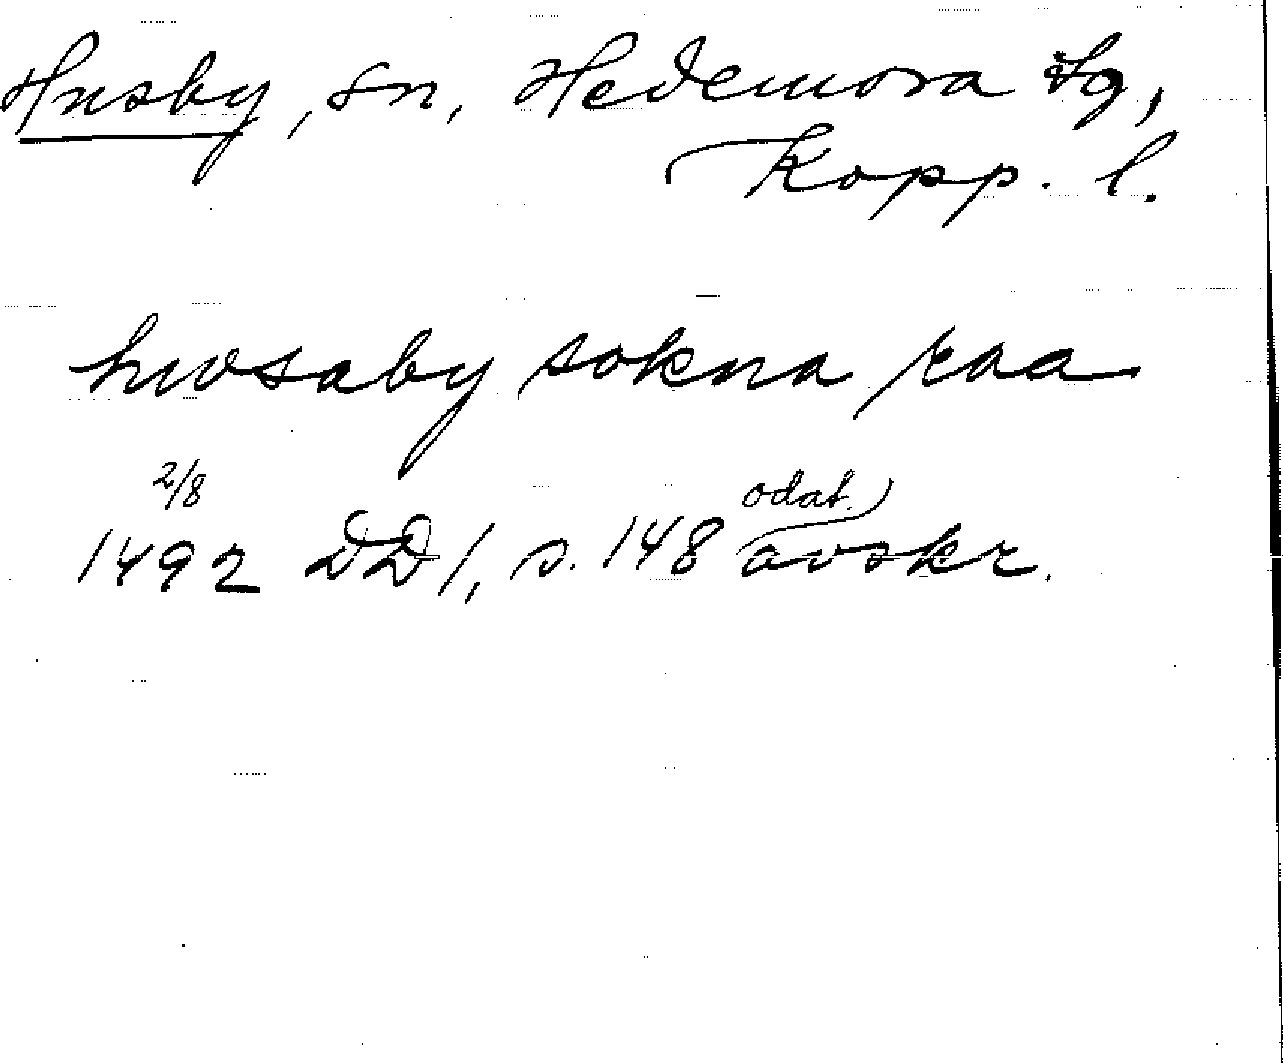 Husby, sn, Hedemora tg,
Kopp. l.
hwsaby sokna raa
2/8
1492 DD 1, s. 148 odat. avskr.